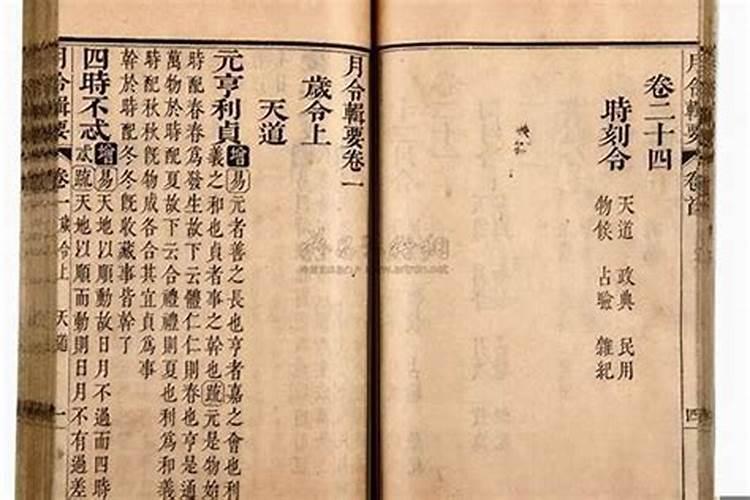 月令輯要 卷首
四
卷二十四
時刻令
天道 政典 民用
物候 占驗 雜紀
月令輯要卷一
歲令上
天道
元亨利貞 增 易 元者善之長也亨者嘉之會也利
義之和也貞者事之幹也 疏 元是物始
時配春春爲發生故下云體仁仁則春也亨是通
萬物於時配夏故下云合禮禮則夏也利爲和義
時配秋秋旣物成各合其宜貞爲事
幹於時配冬冬旣收藏事皆幹了
四時不忒 增 易 天地以順動故日月不過而四時
忒 疏 天地以順而動則日月不有過差
月令輯要 卷一 歲令上 天道 一